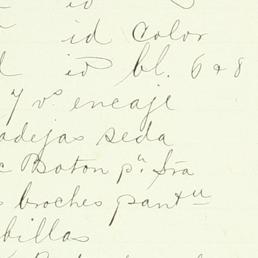 id
id color
id bl. 6 & 8
7 vs. encaje
adejas seda
Boton pa. Sra
broches pant
billas